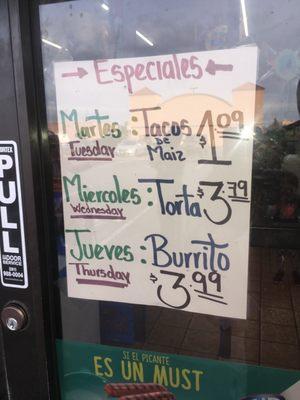 → Especiales ←
Martes : Tacos $1.09
Tuesday De Maiz
Miercoles : Torta $3.79
Wednesday
Jueves : Burrito
Thursday $3.99
PULL
DOOR
SERVICE
988-0004
SI EL PICANTE
ES UN MUST